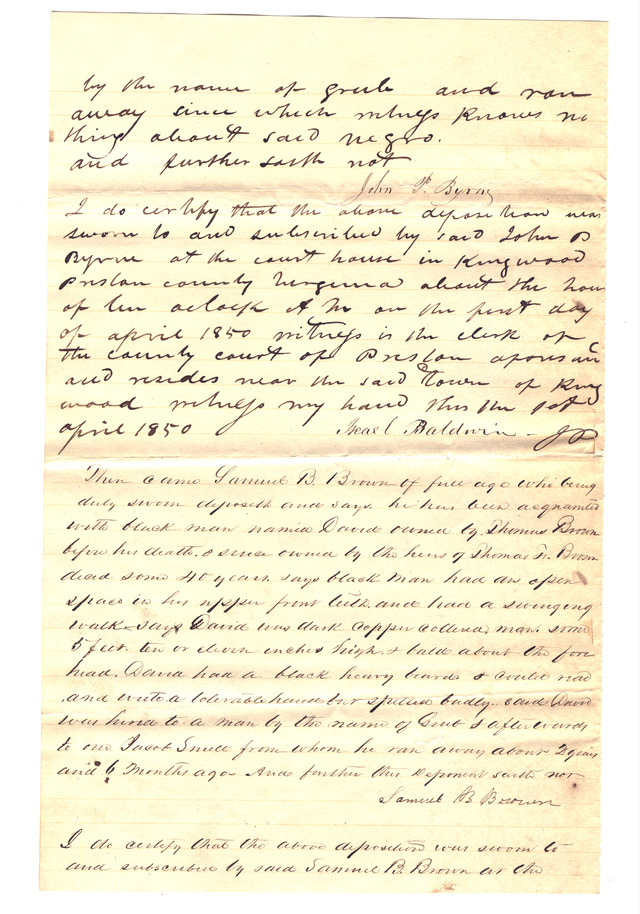 by the name of grub and ran
away since which witness knows no
thing about said negro.
and further saith not
John P. Byrne
I do certify that the above deposition was
sworn to and subscribed by said John P
Byrne at the court house in Kingwood
Preston county Virginia about the hour
of ten oclock A M on the first day
of april 1850 witness is the clerk of
the county court of Preston aforesaid
and resides near the said Town of King
wood witness my hand this the 1st
april 1850 Baldwin JP
Then came Samuel B. Brown of full age who being
duly sworn deposeth and says he has been acquainted
with black man named David owned by Thomas Brown
before his death. & since owned by the heirs of Thomas Brown
decd some 40 years. says black man had an open
space in his upper front teeth. and had a swinging
walk – says David was dark copper collered man. some
5 feet. ten or eleven inches high. & bald about the fore
head. David had a black heavy beard & could read
and write a tolerable hand but spelled badly. said David
was hired to a man by the name of & afterwards
to one Jacob Smell from whom he ran away about 2 years
and 6 months ago – And further this deponent saith not
Samuel B Brown
I do certify that the above deposition was sworn to
and subscribed by said Samuel B. Brown at the